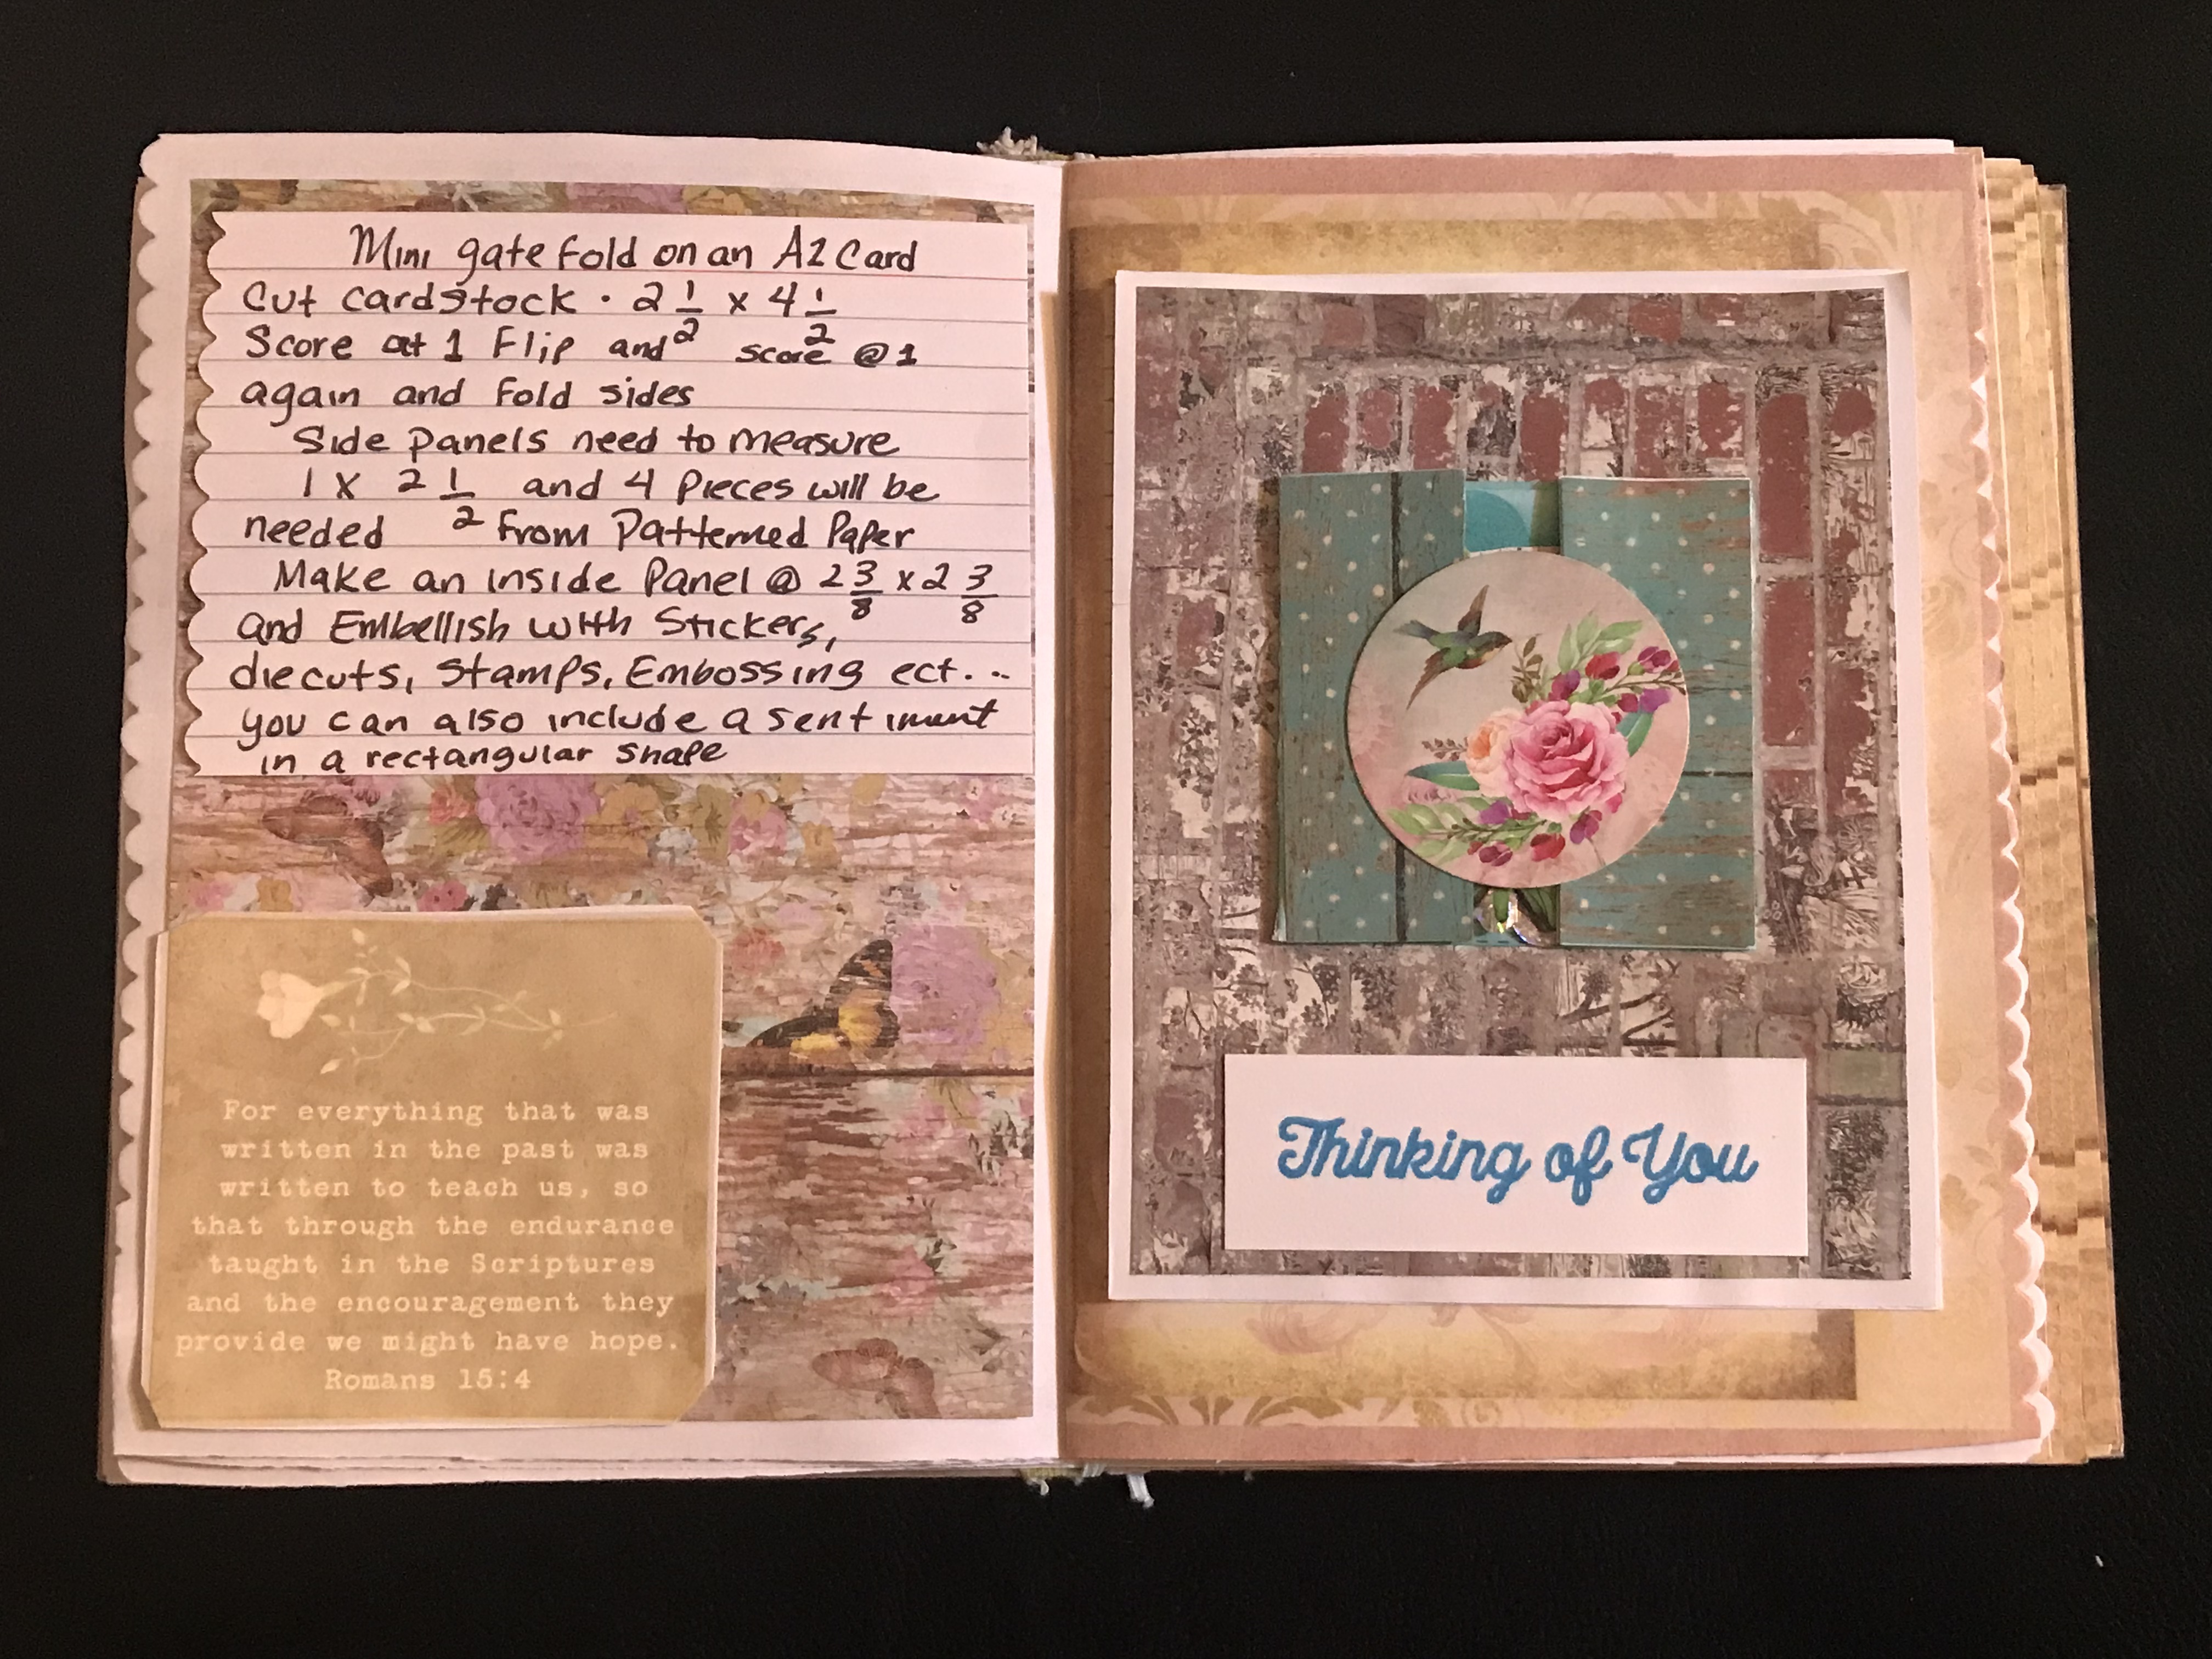 Mini gate fold on an A2 Card
Cut cardstock · 2 1/2 x 4 1/2
Score at 1 Flip and score @ 1
again and fold sides
Side panels need to measure
1 x 2 1/2 and 4 pieces will be
needed from Patterned Paper
Make an inside Panel @ 2 3/8 x 2 3/8
and Embellish with Stickers,
diecuts, Stamps, Embossing ect...
you can also include a sentiment
in a rectangular shape
For everything that was
written in the past was
written to teach us, so
that through the endurance
taught in the Scriptures
and the encouragement they
provide we might have hope.
Romans 15:4
Thinking of You